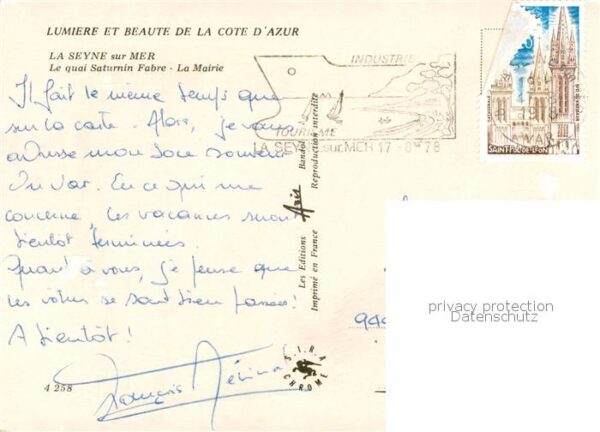 LUMIERE ET BEAUTE DE LA COTE D'AZUR
LA SEYNE sur MER
Le quai Saturnin Fabre - La Mairie
INDUSTRIE
TOURISME
LA SEYNE sur MER 17 - 8 78
SAINT-POL-DE-LEON
Il fait le même temps que
sur la carte. Alors, je vous
adresse mon bon souvenir
du Var. En ce qui me
concerne, les vacances seront
bientôt terminées.
Quant à vous, je pense que
les vôtres se sont bien passées!
A bientôt!
François
4 258
Les Editions Aris Bandol
Imprimé en France Reproduction interdite
S.I.R.A.
CHROME
privacy protection
Datenschutz